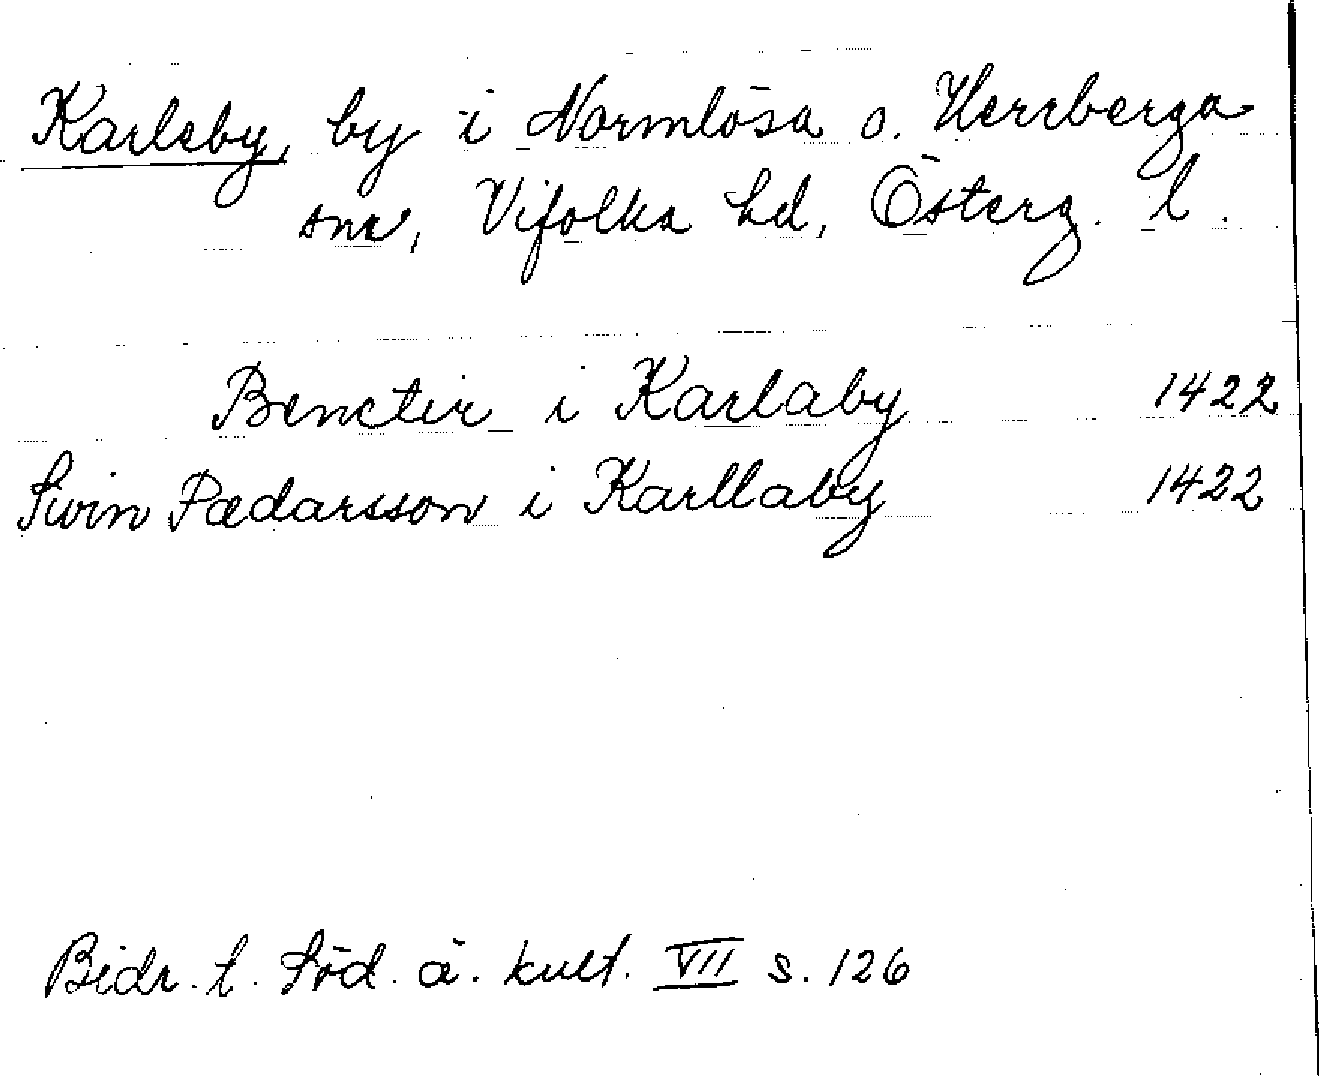 Karleby, by i Normlösa o. Herrberga
snr, Vifolka hd, Österg. l.
Benctir i Karlaby 1422
Swin Pædarsson i Karllaby 1422
Bidr. t. Söd. ä. kult. VII s. 126